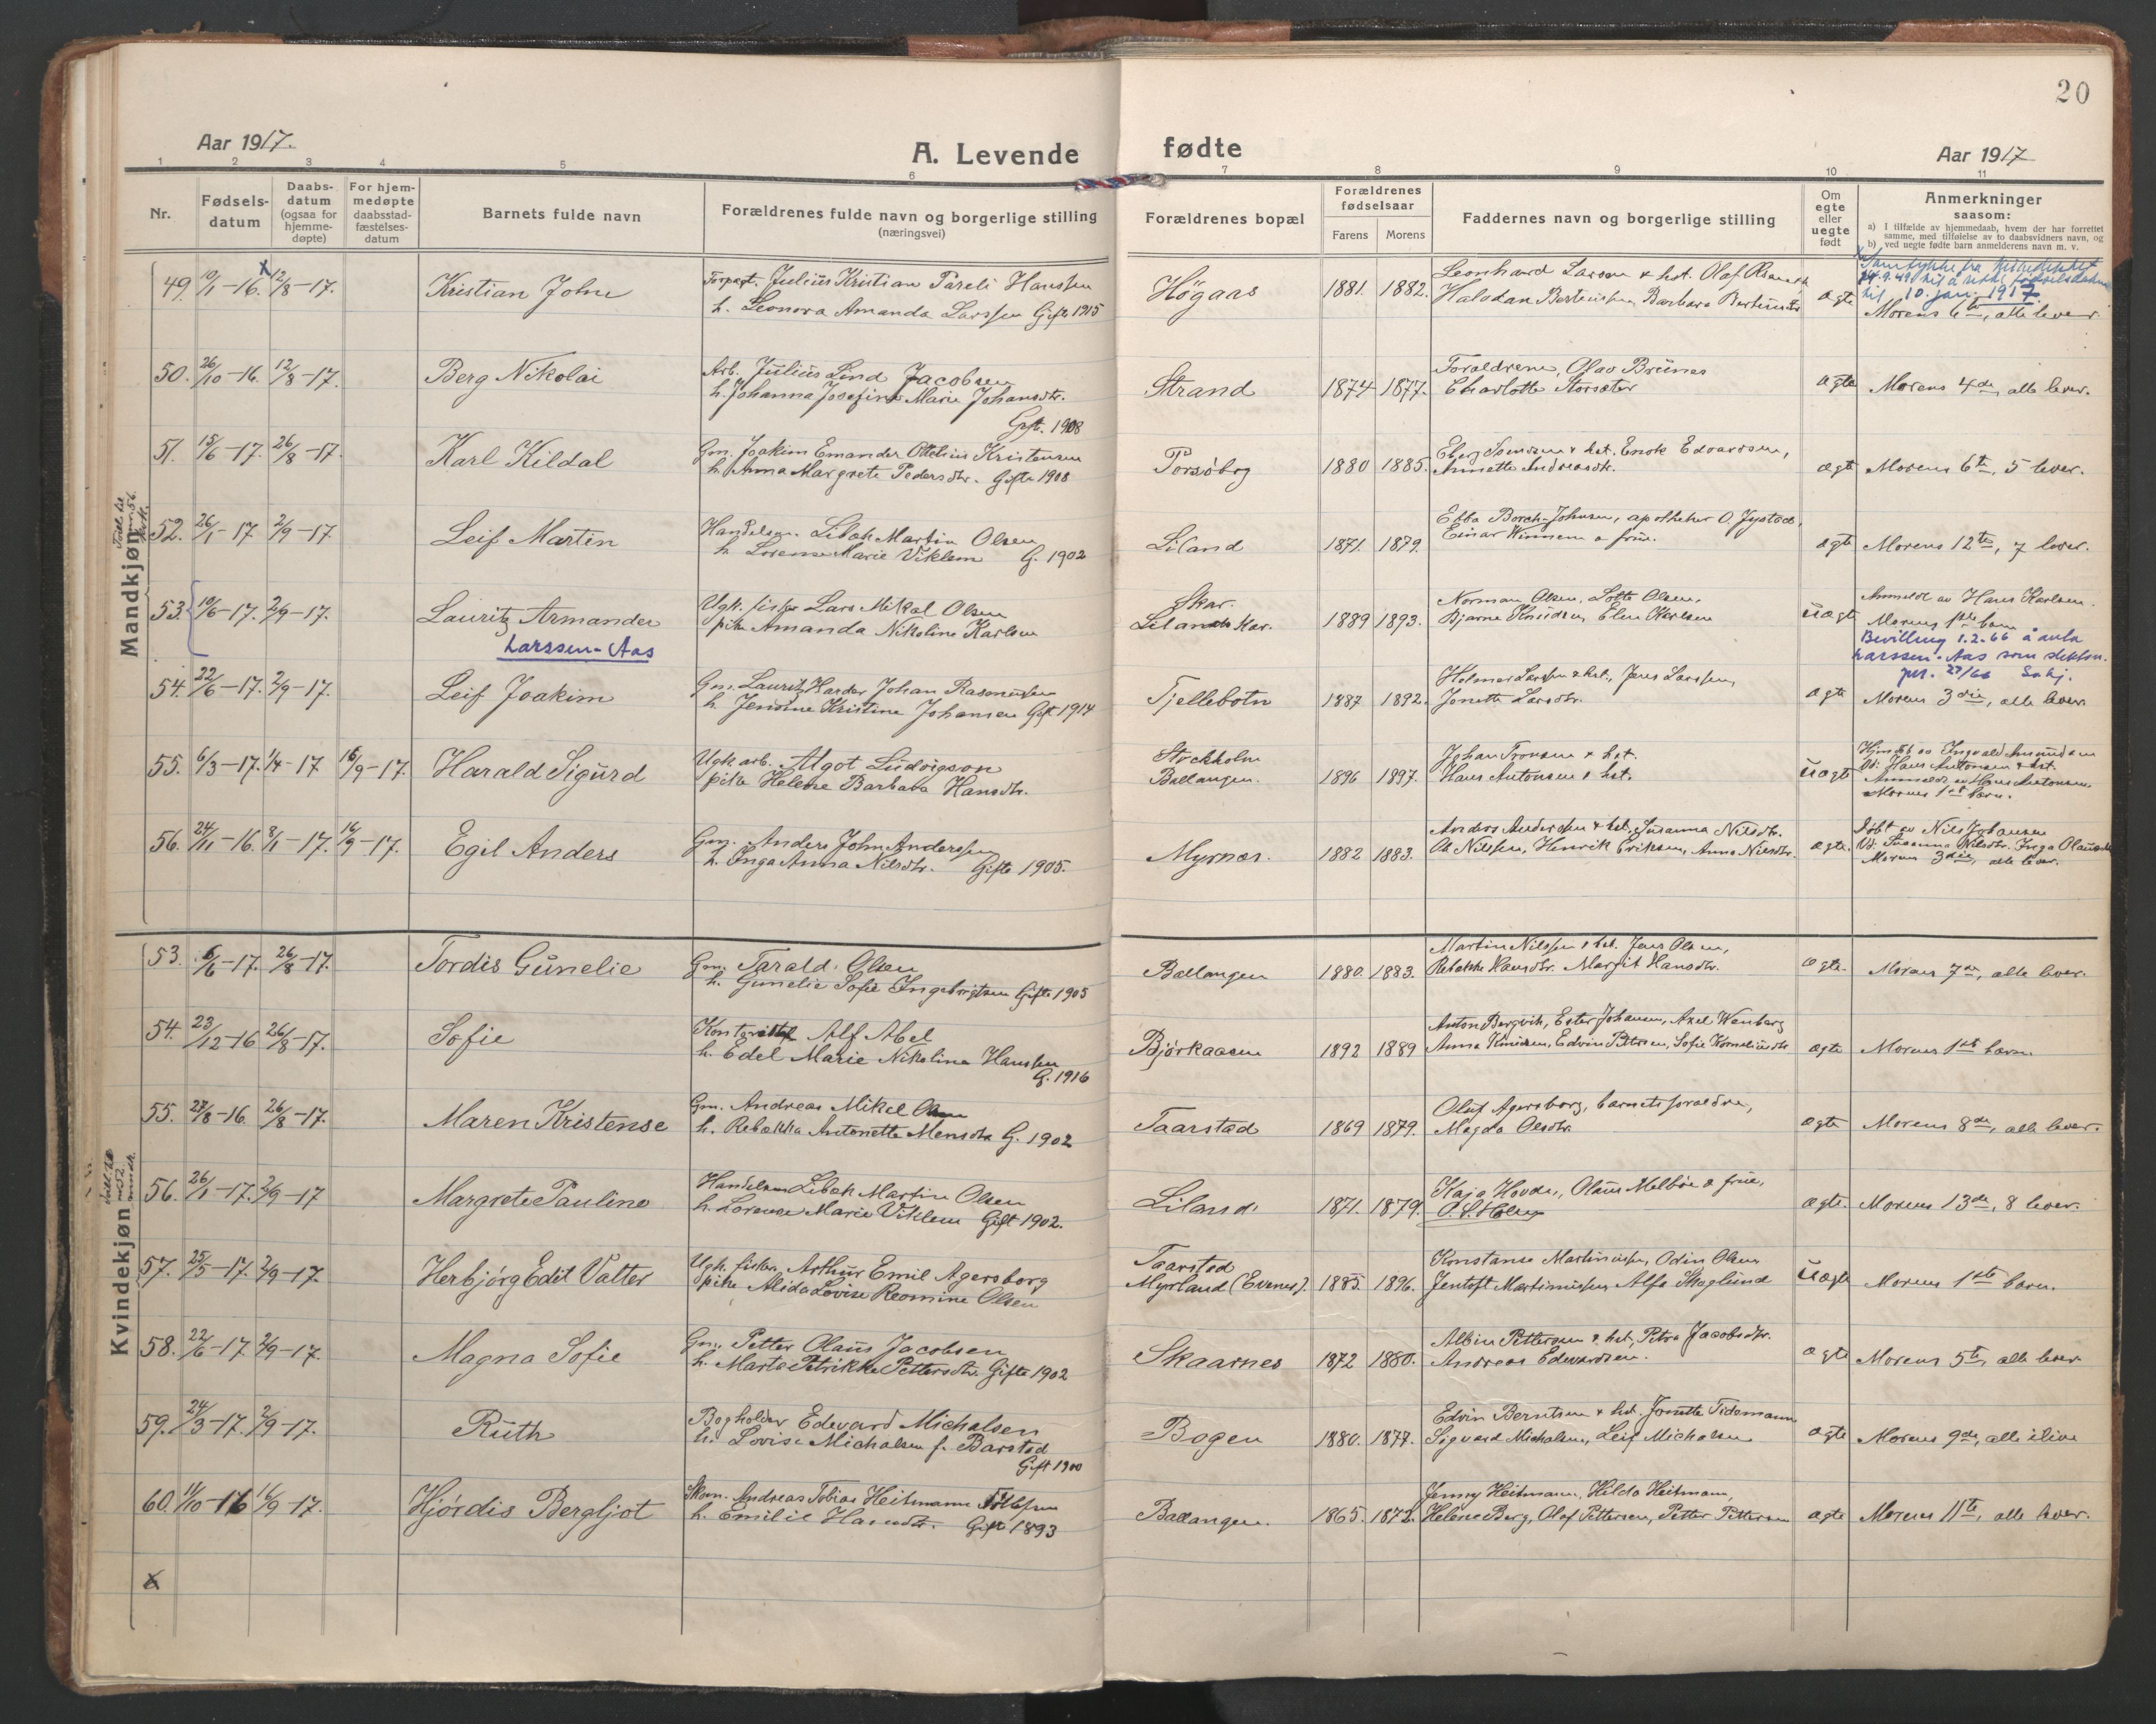 20
Aar 1917.
A. Levende fødte
Aar 1917
1 2 3 4 5 6 7 8 9 10 11
Nr.
Fødsels-
datum
Daabs-
datum
(ogsaa for
hjemme-
døpte)
For hjem-
medøpte
daabsstad-
fæstelses-
datum
Barnets fulde navn
Forældrenes fulde navn og borgerlige stilling
(næringsvei)
Forældrenes bopæl
Forældrenes
fødselsaar
Farens Morens
Faddernes navn og borgerlige stilling
Om
egte
eller
uegte
født
Anmerkninger
saasom:
a) I tilfælde av hjemmedaab, hvem der har forrettet
samme, med tilføielse av to daabsvidners navn, og
b) ved uegte fødte barn anmelderens navn m. v.
Mandkjøn
49. 10/1-16. x 12/8-17. Kristian Johne
Julius Kristian Pareli Hanssen
h. Leonora Amanda Larssen Gift 1915
Högaas 1881. 1882.
Leonhard Larsen & hst. Olaf
Halvdan Bertinussen, Barbara
ægte
til 10. jan. 1917
Morens 6te, alle lever.
50. 26/10-16. 12/8-17. Berg Nikolai
Arb. Julius Lind Jacobsen
h. Johanna Josefine Marie Johansdtr.
Gift. 1908
Strand 1874 1877.
Foraldrene, Olav Brünes
Charlotte Storsæter
ægte Morens 4de, alle lever.
51. 15/6-17. 26/8-17. Karl Kildal
Gm. Joakim Emander Ottelius Kristensen
h. Anna Margrete Pedersdtr. Gifte 1908
Forsøbrg 1880 1885.
& hst. Enok Edvardsen,
Annette Andreasdtr.
ægte Morens 6te, 5 lever.
52. 26/1-17 2/9-17. Leif Martin
Handelsm. Libak Martin Olsen
h. Lorense Marie Viklem G. 1902
Liland 1871. 1879.
Ebba Borch-Johnsen, apotheker O. Jystad,
Einar Winnem & frue.
ægt Morens 12te, 7 lever.
53. 10/6-17. 2/9-17. Lauritz Armander
Larssen-Aas
Ugk. fisker Lars Mikal Olsen
pike Amanda Nikoline Karlsen
Skar.
Liland 1889 1893.
Norman Olsen, Lotte Olsen.
Bjarne Knudsen, Elen Karlsen
üægt Anmeldt av Hans Karlsen.
Morens 1ste barn
Bevilling 1.2.66 å anta
Larssen-Aas som slektsn.
54. 22/6-17. 2/9-17. Leif Joakim
Gm. Lauritz Harder Johan Rasmussen
h. Jensine Kristine Johansen Gift 1914
Fjellebotn 1887 1892.
Helmer Larssen & hst., Jens Larssen,
Jonette Larsdtr.
ægt Morens 3die, alle lever
55. 6/3-17. 1/4-17 16/9-17. Harald Sigurd
Ugk. arb. Algot Ludvigson
pike Helene Barbara Hansdtr.
Stockholm
Ballangen. 1896 1897.
Johan Tronsen & hst.
Hans Antonsen & hst.
üægte Hjmdbt av Ingvald Amundsen
Vd. Hans Antonsen & hst.
Anmeldt av Hans Antonsen
Morens 1ste barn.
56. 24/11-16. 8/1-17. 16/9-17. Egil Anders
Gm. Anders John Anderssen
h. Inga Anna Nilsdtr. Gifte 1905.
Myrnæs. 1882 1883.
Anders Andersen & hst., Susanna Nilsdtr.
Ole Nilssen, Henrik Eriksen, Anna Nilsdtr.
ægte. Døbt av Nils Johansen
Vd. Susanna Nilsdtr. Inga
Morens 3die, alle lever.
Kvindekjøn
53. 6/6-17. 26/8-17. Tordis Günelie
Gm. Tarald Olsen
h. Gunelie Sofie Ingebrigtsen Gifte 1905
Ballangen 1880. 1883.
Martin Nilssen & hst. Jens Olsen,
Rebekka Hansdtr. Margit Hansdtr.
ægte. Morens 7de, alle lever.
54. 23/12-16 26/8-17. Sofie
Kontorist Alf Abel
h. Edel Marie Nikoline Hanssen
G. 1916
Bjørkaasen 1892 1889
Anton Bergvik, Ester Johansen, Axel Wenberg
Anna Knudsen, Edvin Pettersen, Sofie Korneliusdtr
ægte Morens 1ste barn
55. 27/8-16. 26/8-17. Maren Kristense
Gm. Andreas Mikel Olsen
h. Rebekka Antonette Mensdtr G. 1902
Taarstad 1869 1879.
Oluf Agersborg, barnets foraldre,
Magda Olsdtr.
ægte Morens 8de, alle lever.
56. 26/1-17. 2/9-17 Margrete Pauline
Handelsm Libak Martin Olsen
h. Lorense Marie Viklem Gift 1902.
Liland 1871. 1879.
Kaja Hovde, Olaus Melbøe & frue,
ægte. Morens 13de, 8 lever.
57. 25/5-17. 2/9-17. Herbjörg Edit Valter
Ugk. fisker Arthur Emil Agersborg
pike Alida Lovise Reomine Olsen
Taarstad
Myrland (Evenes). 1885. 1896.
Konstanse Martinussen, Odin Olsen
Jentoft Martinussen, Alfa Skoglund
üægt Morens 1ste barn.
58. 22/6-17. 2/9-17. Magna Sofie
Gm. Petter Olaus Jacobsen
h. Marta Petrikke Pettersdtr. Gifte 1902
Skaarnes 1872 1880.
Albin Pettersen & hst., Petra Jacobsdtr.
Andreas Edvardsen.
ægte Morens 5te, alle lever.
59. 24/3-17. 2/9-17. Ruth
Bogholder Edevard Michalsen
h. Lovise Michalsen f. Barstad
Gift 1900
Bogen 1880. 1877.
Edvin Berntsen & hst. Jonette Tidemann
Sigvard Michalsen, Leif Michalsen
ægte Morens 9de, alle ilive
60. 11/10-16 16/9-17. Hjördis Bergljot
Skom. Andreas Tobias Heitmann Tollefsen
h. Emilie Hansdtr. Gift 1893
Ballangen. 1865. 1872.
Jenny Heitmann, Hilda Heitmann,
Helene Berg, Olaf Pettersen, Petter Pettersen
ægte Morens 11te, alle lever.
x